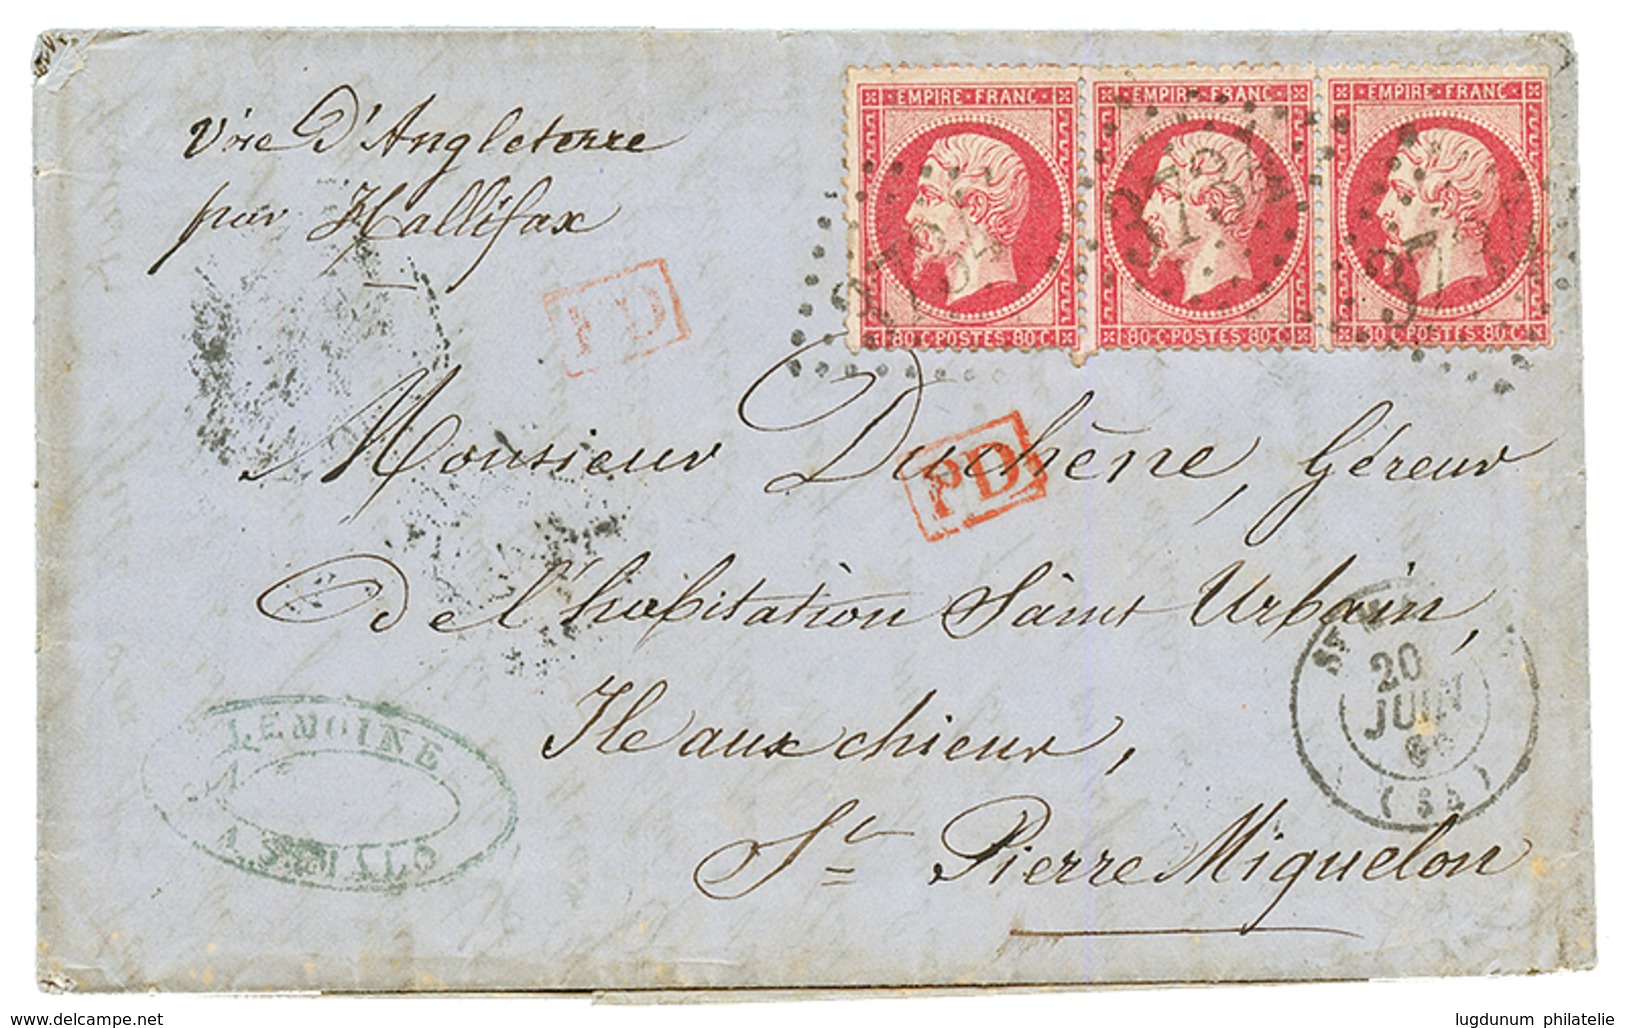 Voie D'Angleterre
par Hallifax
EMPIRE·FRANC·
EMPIRE·FRANC·
EMPIRE·FRANC·
3734
3734
373
80·C·POSTES·80·C
80·C·POSTES·80·C
80·C·POSTES·80·C
PD
PD
Monsieur Duchêne, Géreur
De l'habitation Saint Urbain,
Ile aux chiens,
St Pierre Miquelon
20
JUIN
LEMOINE
A St MALO
delcampe.net
lugdunum philatelie